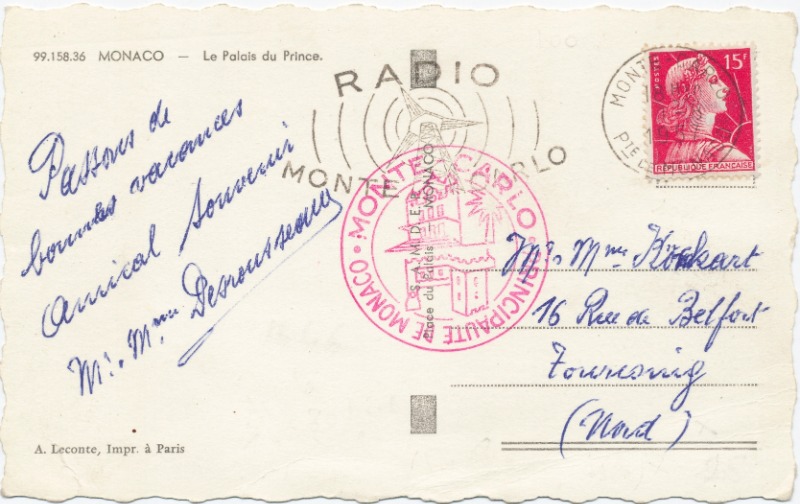 99.158.36 MONACO — Le Palais du Prince.
Passons de
bonnes vacances
Amical Souvenir
Mr. Mme Desrousseaux
A. Leconte, Impr. à Paris
RADIO
MONTE CARLO
MONTE-CARLO • PRINCIPAUTE DE MONACO •
Place du Palais MONACO
MONTE
Pte DE
POSTES
15F
REPUBLIQUE FRANÇAISE
Mr. Mme
16 Rue de Belfort
Tourcoing
(Nord)